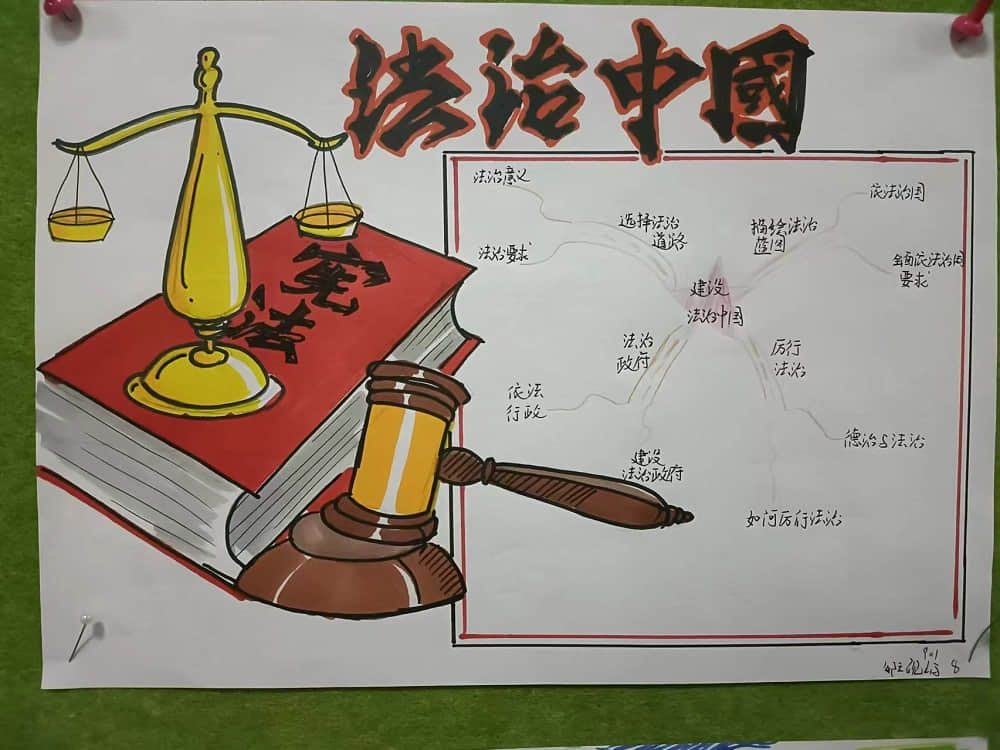 法治中國
宪
法
法治意义
法治要求
选择法治
道路
描绘法治
蓝图
依法治国
全面依法治国
要求
建设
法治中国
法治
政府
厉行
法治
依法
行政
建设
法治政府
德治与法治
如何厉行法治
901
8